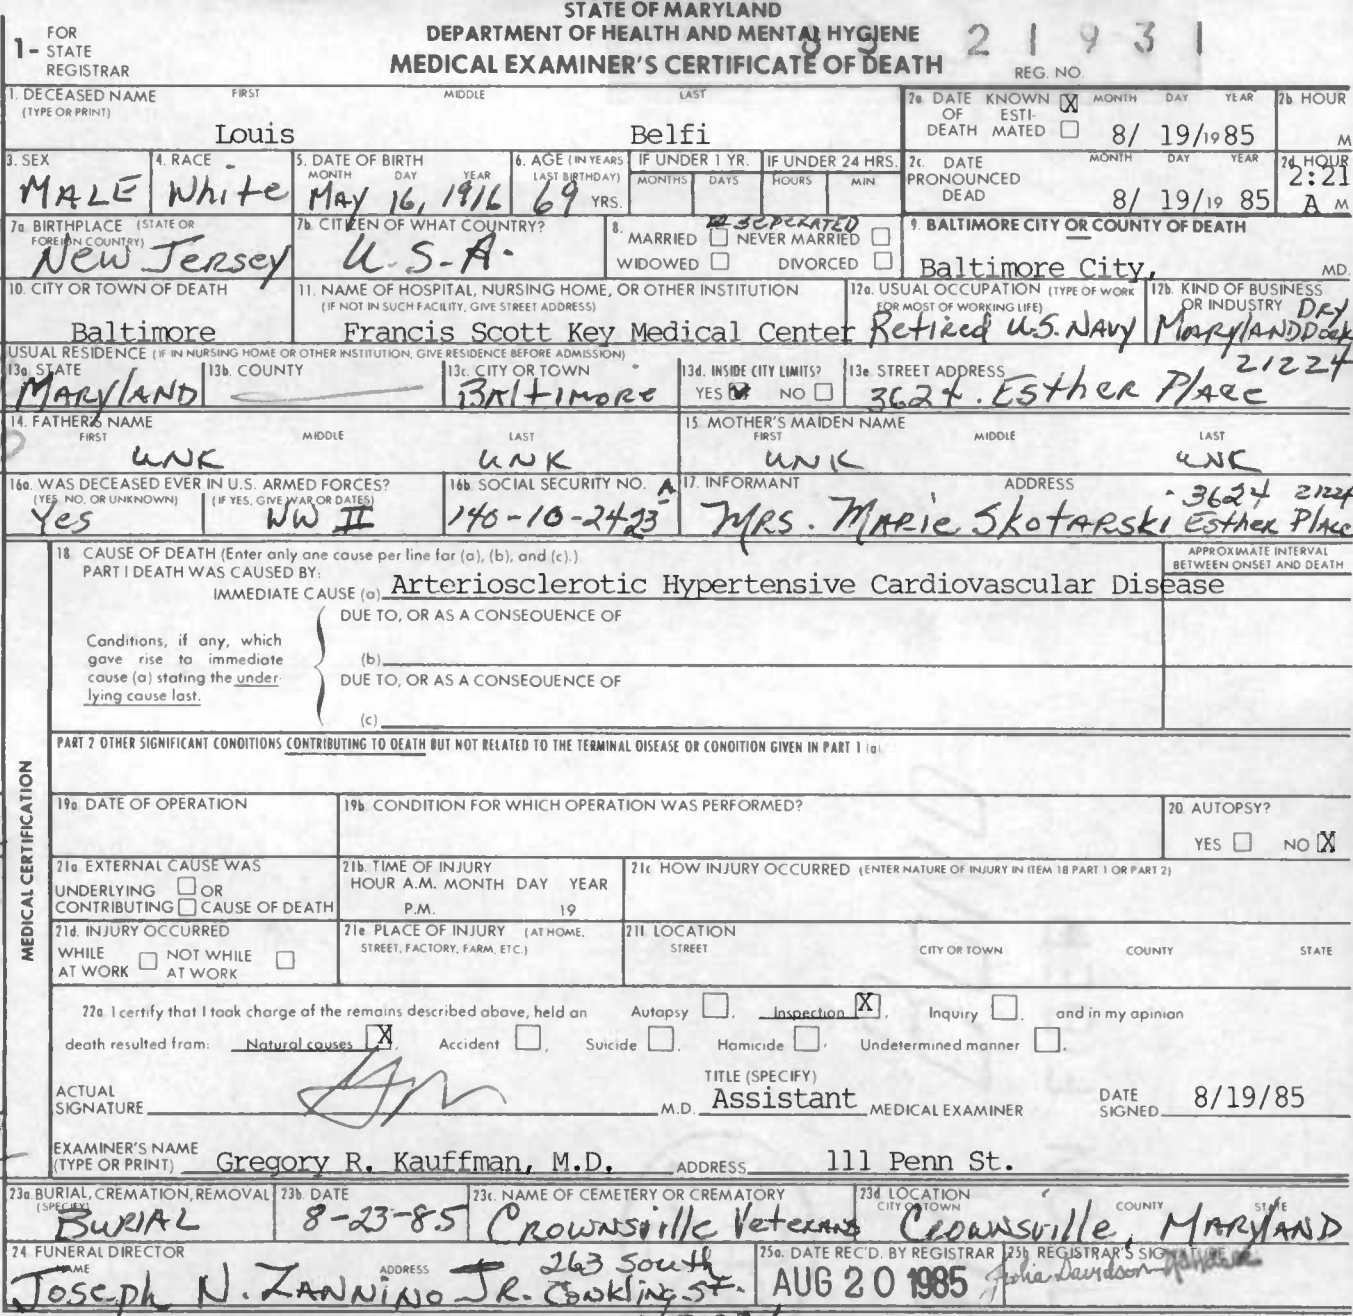 STATE OF MARYLAND
DEPARTMENT OF HEALTH AND MENTAL HYGIENE
MEDICAL EXAMINER'S CERTIFICATE OF DEATH
1- FOR STATE REGISTRAR
21931
REG. NO.
1. DECEASED NAME (TYPE OR PRINT) FIRST MIDDLE LAST
Louis Belfi
2a. DATE OF DEATH KNOWN X ESTIMATED MONTH DAY YEAR
8/ 19/1985
2b HOUR M
3. SEX
MALE
4. RACE
White
5. DATE OF BIRTH MONTH DAY YEAR
MAY 16, 1916
6. AGE (IN YEARS LAST BIRTHDAY)
69 YRS.
IF UNDER 1 YR. MONTHS DAYS
IF UNDER 24 HRS. HOURS MIN
2c. DATE PRONOUNCED DEAD MONTH DAY YEAR
8/ 19/19 85
2d. HOUR
2:21
A M
7a BIRTHPLACE (STATE OR FOREIGN COUNTRY)
New Jersey
7b. CITIZEN OF WHAT COUNTRY?
U.S.A.
8. SEPERATED
MARRIED NEVER MARRIED
WIDOWED DIVORCED
9. BALTIMORE CITY OR COUNTY OF DEATH
Baltimore City, MD.
10. CITY OR TOWN OF DEATH
Baltimore
11. NAME OF HOSPITAL, NURSING HOME, OR OTHER INSTITUTION
(IF NOT IN SUCH FACILITY, GIVE STREET ADDRESS)
Francis Scott Key Medical Center
12a. USUAL OCCUPATION (TYPE OF WORK FOR MOST OF WORKING LIFE)
Retired U.S. NAVY
12b. KIND OF BUSINESS OR INDUSTRY
MARYLAND DRY Dock
USUAL RESIDENCE (IF IN NURSING HOME OR OTHER INSTITUTION, GIVE RESIDENCE BEFORE ADMISSION)
13a. STATE
MARYLAND
13b. COUNTY
13c. CITY OR TOWN
BALTIMORE
13d. INSIDE CITY LIMITS?
YES NO
13e STREET ADDRESS
21224
3624. Esther Place
14. FATHER'S NAME FIRST MIDDLE LAST
UNK UNK
15 MOTHER'S MAIDEN NAME FIRST MIDDLE LAST
UNK UNK
16a. WAS DECEASED EVER IN U.S. ARMED FORCES?
(YES, NO, OR UNKNOWN) (IF YES, GIVE WAR OR DATES)
Yes WW II
16b SOCIAL SECURITY NO.
140-10-2423 A
17. INFORMANT ADDRESS
MRS. MARIE SKOTARSKI 3624 21224 Esther Place
MEDICAL CERTIFICATION
18 CAUSE OF DEATH (Enter only one cause per line for (a), (b), and (c).)
PART I DEATH WAS CAUSED BY:
APPROXIMATE INTERVAL BETWEEN ONSET AND DEATH
IMMEDIATE CAUSE (a) Arteriosclerotic Hypertensive Cardiovascular Disease
DUE TO, OR AS A CONSEQUENCE OF
Conditions, if any, which gave rise to immediate cause (a) stating the underlying cause last.
(b)
DUE TO, OR AS A CONSEQUENCE OF
(c)
PART 2 OTHER SIGNIFICANT CONDITIONS CONTRIBUTING TO DEATH BUT NOT RELATED TO THE TERMINAL DISEASE OR CONDITION GIVEN IN PART 1 (a)
19a DATE OF OPERATION
19b CONDITION FOR WHICH OPERATION WAS PERFORMED?
20. AUTOPSY?
YES NO X
21a EXTERNAL CAUSE WAS
UNDERLYING OR
CONTRIBUTING CAUSE OF DEATH
21b. TIME OF INJURY
HOUR A.M. MONTH DAY YEAR
P.M. 19
21c HOW INJURY OCCURRED (ENTER NATURE OF INJURY IN ITEM 18 PART 1 OR PART 2)
21d. INJURY OCCURRED
WHILE AT WORK NOT WHILE AT WORK
21e PLACE OF INJURY (AT HOME, STREET, FACTORY, FARM, ETC.)
21f LOCATION
STREET CITY OR TOWN COUNTY STATE
22a. I certify that I took charge of the remains described above, held an Autopsy , Inspection X , Inquiry , and in my opinion
death resulted from: Natural causes X , Accident , Suicide , Homicide , Undetermined manner .
ACTUAL SIGNATURE M.D.
TITLE (SPECIFY)
Assistant MEDICAL EXAMINER
DATE SIGNED 8/19/85
EXAMINER'S NAME (TYPE OR PRINT) Gregory R. Kauffman, M.D. ADDRESS 111 Penn St.
23a. BURIAL, CREMATION, REMOVAL (SPECIFY)
BURIAL
23b. DATE
8-23-85
23c. NAME OF CEMETERY OR CREMATORY
Crownsville Veterans
23d LOCATION CITY OR TOWN COUNTY STATE
Crownsville, MARYLAND
24 FUNERAL DIRECTOR
NAME ADDRESS
Joseph N. ZANNINO JR. 263 South Conkling St.
25a. DATE REC'D. BY REGISTRAR
AUG 20 1985
25b REGISTRAR'S SIGNATURE
Julia Davidson